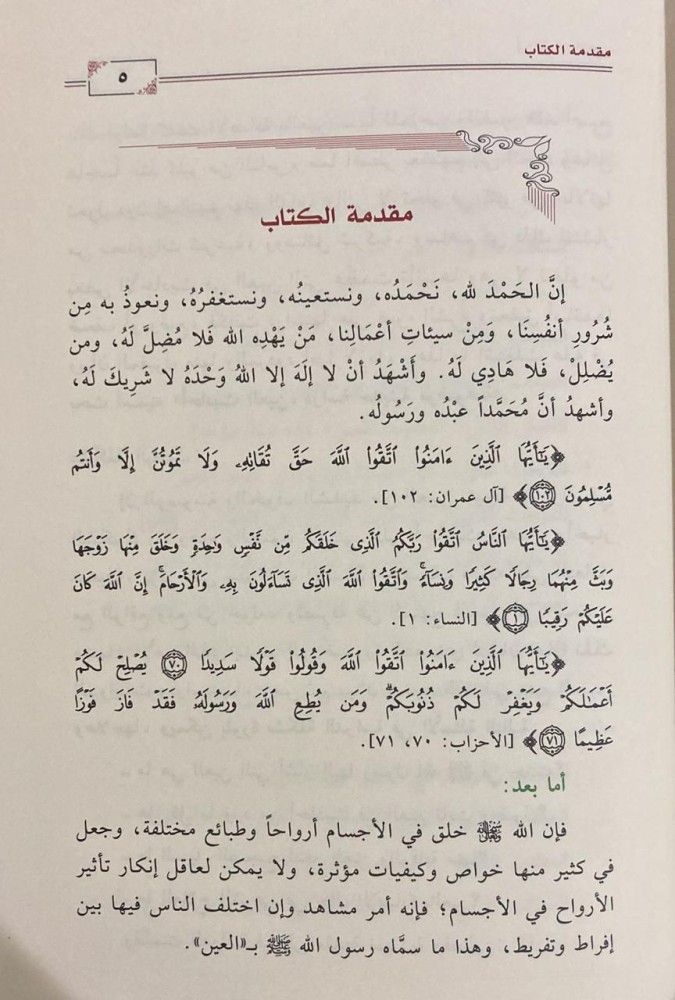 مقدمة الكتاب
٥
مقدمة الكتاب
إنَّ الحَمْدَ لله، نَحْمَدُه، ونستعينُه، ونستغفرُهُ، ونعوذُ به مِن
شُرُورِ أنفُسِنَا، وَمِنْ سيئاتِ أعْمَالِنا، مَنْ يَهْدِه الله فَلا مُضِلَّ لَهُ، ومن
يُضْلِلْ، فَلا هَادِي لَهُ. وأَشْهَدُ أنْ لا إلَهَ إلا اللهُ وَحْدَهُ لا شَرِيكَ لَهُ،
وأشهدُ أنَّ مُحَمَّداً عبْدُه ورَسُولُه.
﴿يَٰٓأَيُّهَا ٱلَّذِينَ ءَامَنُوا۟ ٱتَّقُوا۟ ٱللَّهَ حَقَّ تُقَاتِهِۦ وَلَا تَمُوتُنَّ إِلَّا وَأَنتُم
مُّسْلِمُونَ ﴿١٠٢﴾﴾ [آل عمران: ١٠٢].
﴿يَٰٓأَيُّهَا ٱلنَّاسُ ٱتَّقُوا۟ رَبَّكُمُ ٱلَّذِى خَلَقَكُم مِّن نَّفْسٍ وَٰحِدَةٍ وَخَلَقَ مِنْهَا زَوْجَهَا
وَبَثَّ مِنْهُمَا رِجَالًا كَثِيرًا وَنِسَآءً ۚ وَٱتَّقُوا۟ ٱللَّهَ ٱلَّذِى تَسَآءَلُونَ بِهِۦ وَٱلْأَرْحَامَ ۚ إِنَّ ٱللَّهَ كَانَ
عَلَيْكُمْ رَقِيبًا ﴿١﴾﴾ [النساء: ١].
﴿يَٰٓأَيُّهَا ٱلَّذِينَ ءَامَنُوا۟ ٱتَّقُوا۟ ٱللَّهَ وَقُولُوا۟ قَوْلًا سَدِيدًا ﴿٧٠﴾ يُصْلِحْ لَكُمْ
أَعْمَٰلَكُمْ وَيَغْفِرْ لَكُمْ ذُنُوبَكُمْ ۗ وَمَن يُطِعِ ٱللَّهَ وَرَسُولَهُۥ فَقَدْ فَازَ فَوْزًا
عَظِيمًا ﴿٧١﴾﴾ [الأحزاب: ٧٠، ٧١].
أما بعد:
فإن الله ﷻ خلق في الأجسام أرواحاً وطبائع مختلفة، وجعل
في كثير منها خواص وكيفيات مؤثرة، ولا يمكن لعاقل إنكار تأثير
الأرواح في الأجسام؛ فإنه أمر مشاهد وإن اختلف الناس فيها بين
إفراط وتفريط، وهذا ما سمَّاه رسول الله ﷺ بـ«العين».